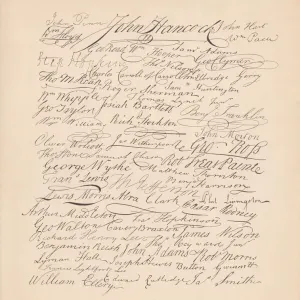 John Penn John Hancock John Hart
Wm Hooper Sam' Adams Wm Paca
Step Hopkins Geo Clymer
Charles Carroll of Carrollton Elbridge Gerry
Tho M: Kean Roger Sherman Sam' Huntington
Wm Whipple Thomas Lynch Jun'
Geo Taylor Josiah Bartlett Benj Franklin
Wm Williams Rich Stockton
John Morton
Oliver Wolcott Jno Witherspoon Geo Ross
Tho Stone Samuel Chase Rob Treat Paine
George Wythe Matthew Thornton
Fran Lewis Th Jefferson Benj Harrison
Lewis Morris Abra Clark Phil Livingston
Cæsar Rodney
Arthur Middleton Fra Hopkinson
Geo Walton Carter Braxton James Wilson
Richard Henry Lee Tho Heyward Jun
Benjamin Rush John Adams Rob Morris
Lyman Hall Joseph Hewes Button Gwinnett
Francis Lightfoot Lee
William Ellery Edward Rutledge Ja Smith